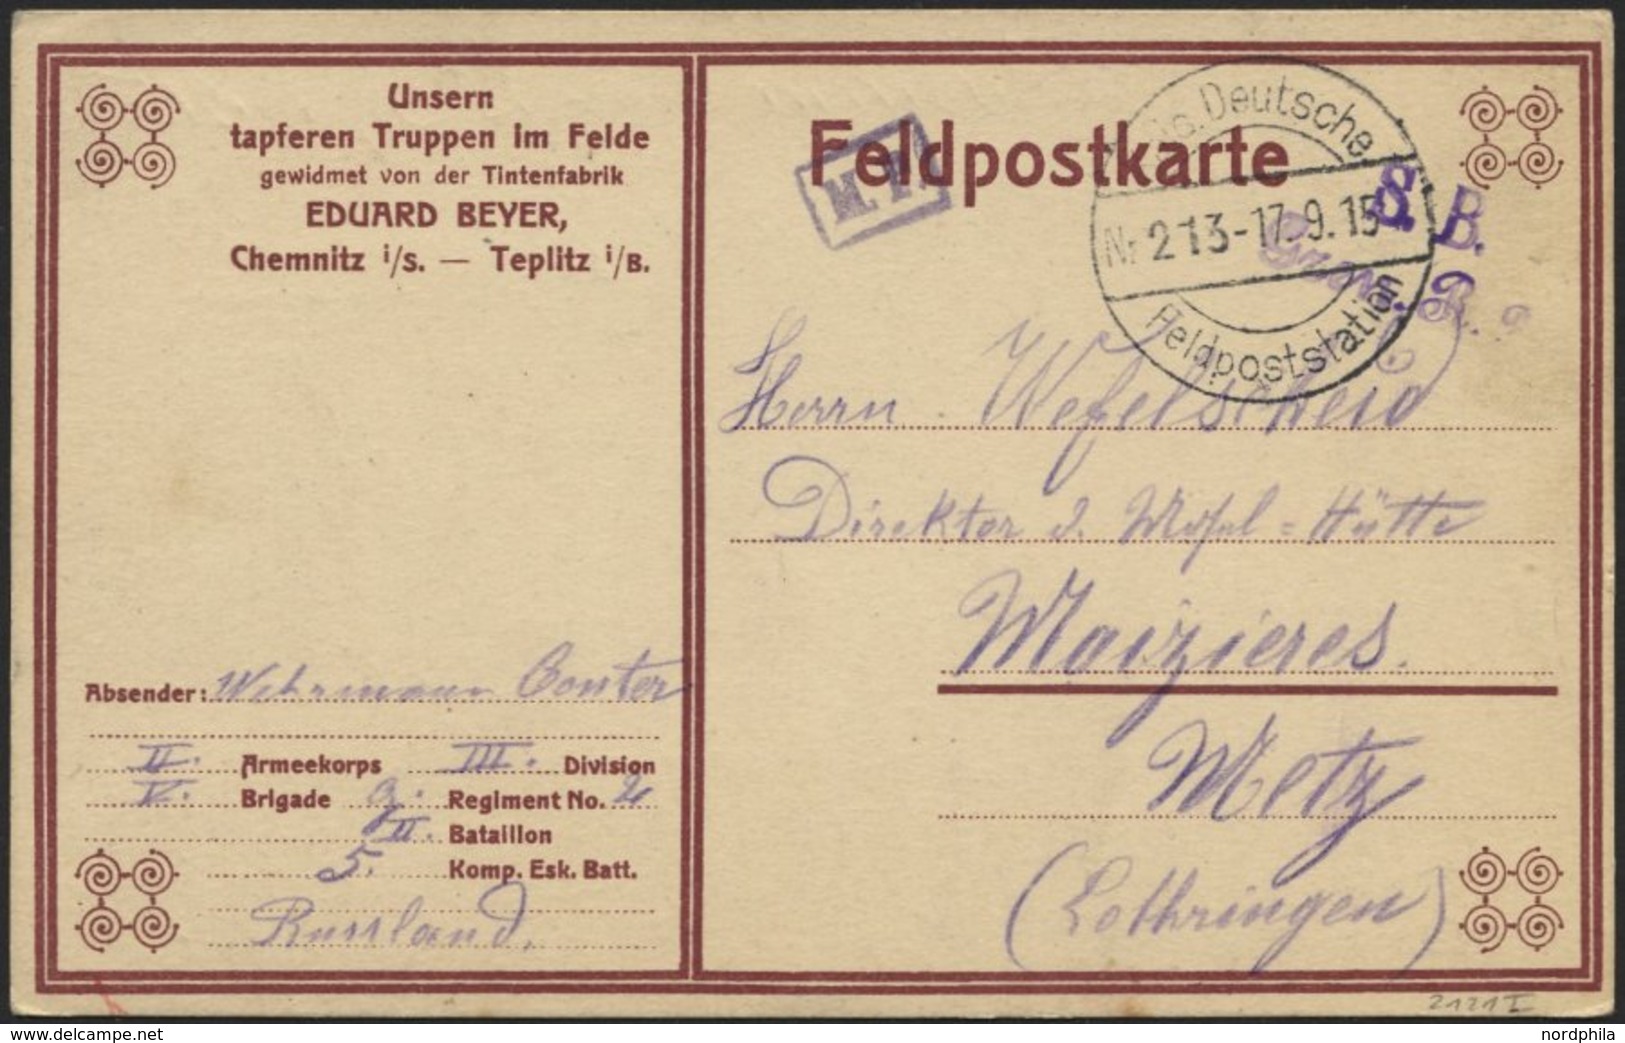 Unsern
tapferen Truppen im Felde
gewidmet von der Tintenfabrik
EDUARD BEYER,
Chemnitz i/S. — Teplitz i/B.
Absender: Wehrmann Conter
II. Armeekorps III. Division
V. Brigade g. Regiment No. 2
II. Bataillon
5. Komp. Esk. Batt.
Russland.
Feldpostkarte
M.P.
Deutsche
Nr 213-17.9.15
Feldpoststation
S. B.
Herrn Wefelscheid
Direktor d. Mosel=Hütte
Maizieres.
Metz
(Lothringen)
2121 I
nordphila